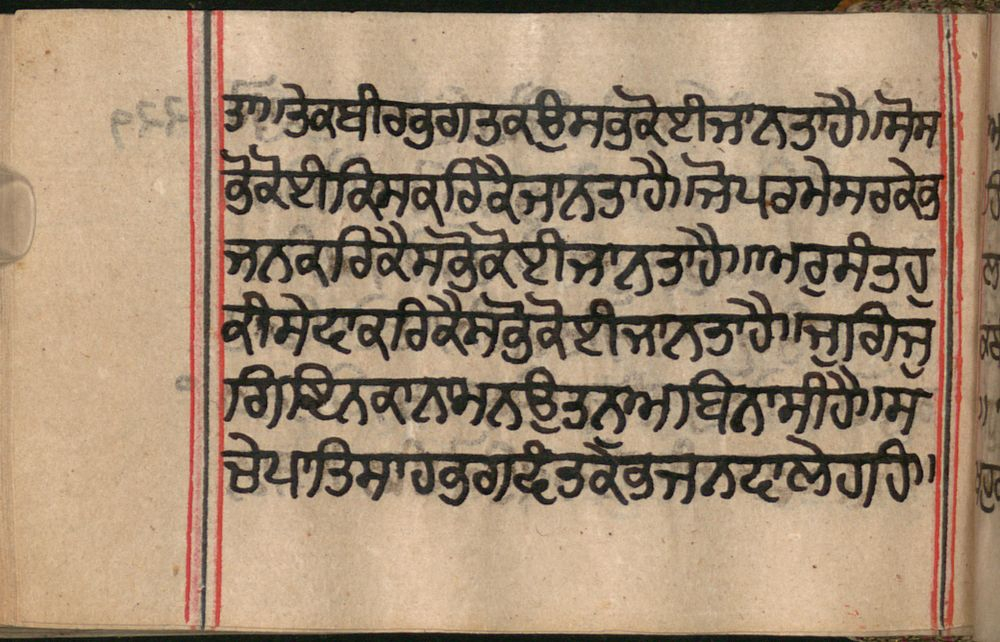 ਤਾ॥ਤੇਕਬੀਰਭੁਗਤਕਉਸਭੁਕੋਈਜਾਨਤਾਹੈ॥ਸੋਸ
ਭੁਕੋਈਕਿਸਕਰਿਕੈਜਾਨਤਾਹੈ॥ਜੋਪਰਮੇਸਰਕੇਭ
ਜਨਕਰਿਕੈਸਭੁਕੋਈਜਾਨਤਾਹੈ॥ਅਰੁਸੰਤਹੁ
ਕੀਸੇਵਾਕਰਿਕੈਸਭੁਕੋਈਜਾਨਤਾਹੈ॥ਜੁਗਿਜੁ
ਗਿਇਨਕਾਨਾਮਨਉਤਨਾਅਬਿਨਾਸੀਹੈ॥ਸ
ਚੇਪਾਤਿਸਾਹਭਗਵੰਤਕੋਭਜਨਵਾਲੇਹਹਿ॥